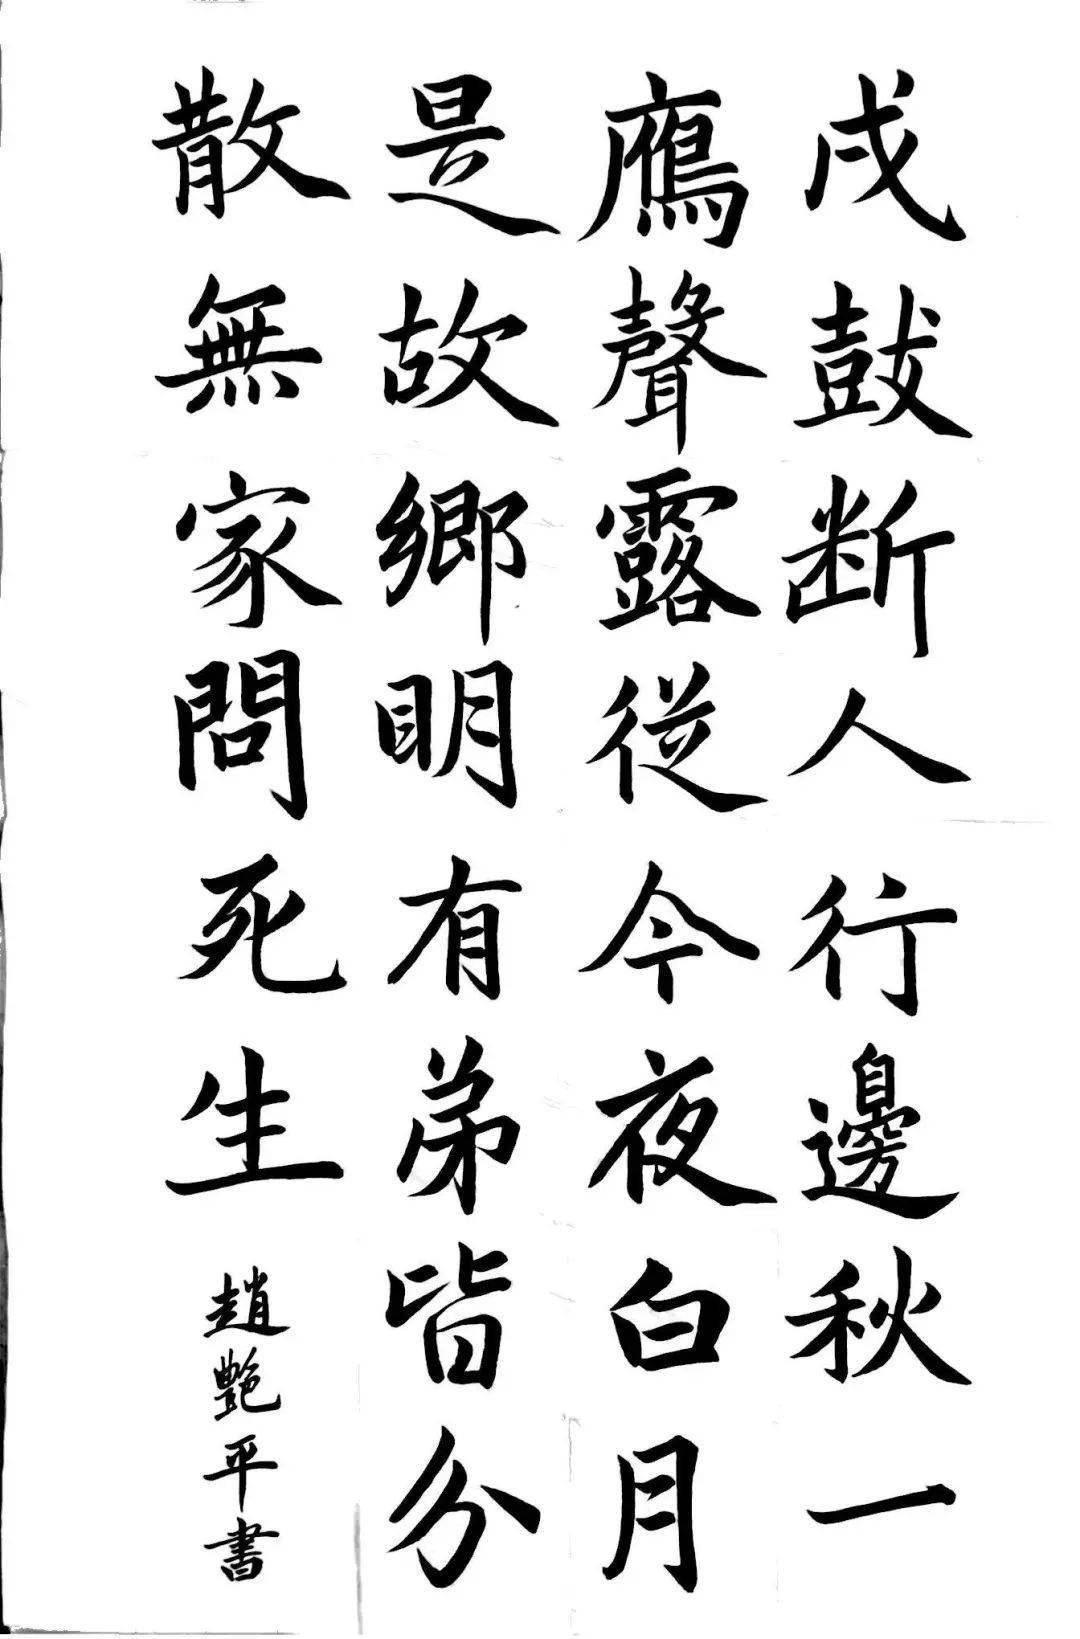 戍鼓断人行邊秋一
鴈聲露従今夜白月
是故鄉明有弟皆分
散無家問死生
趙艶平書